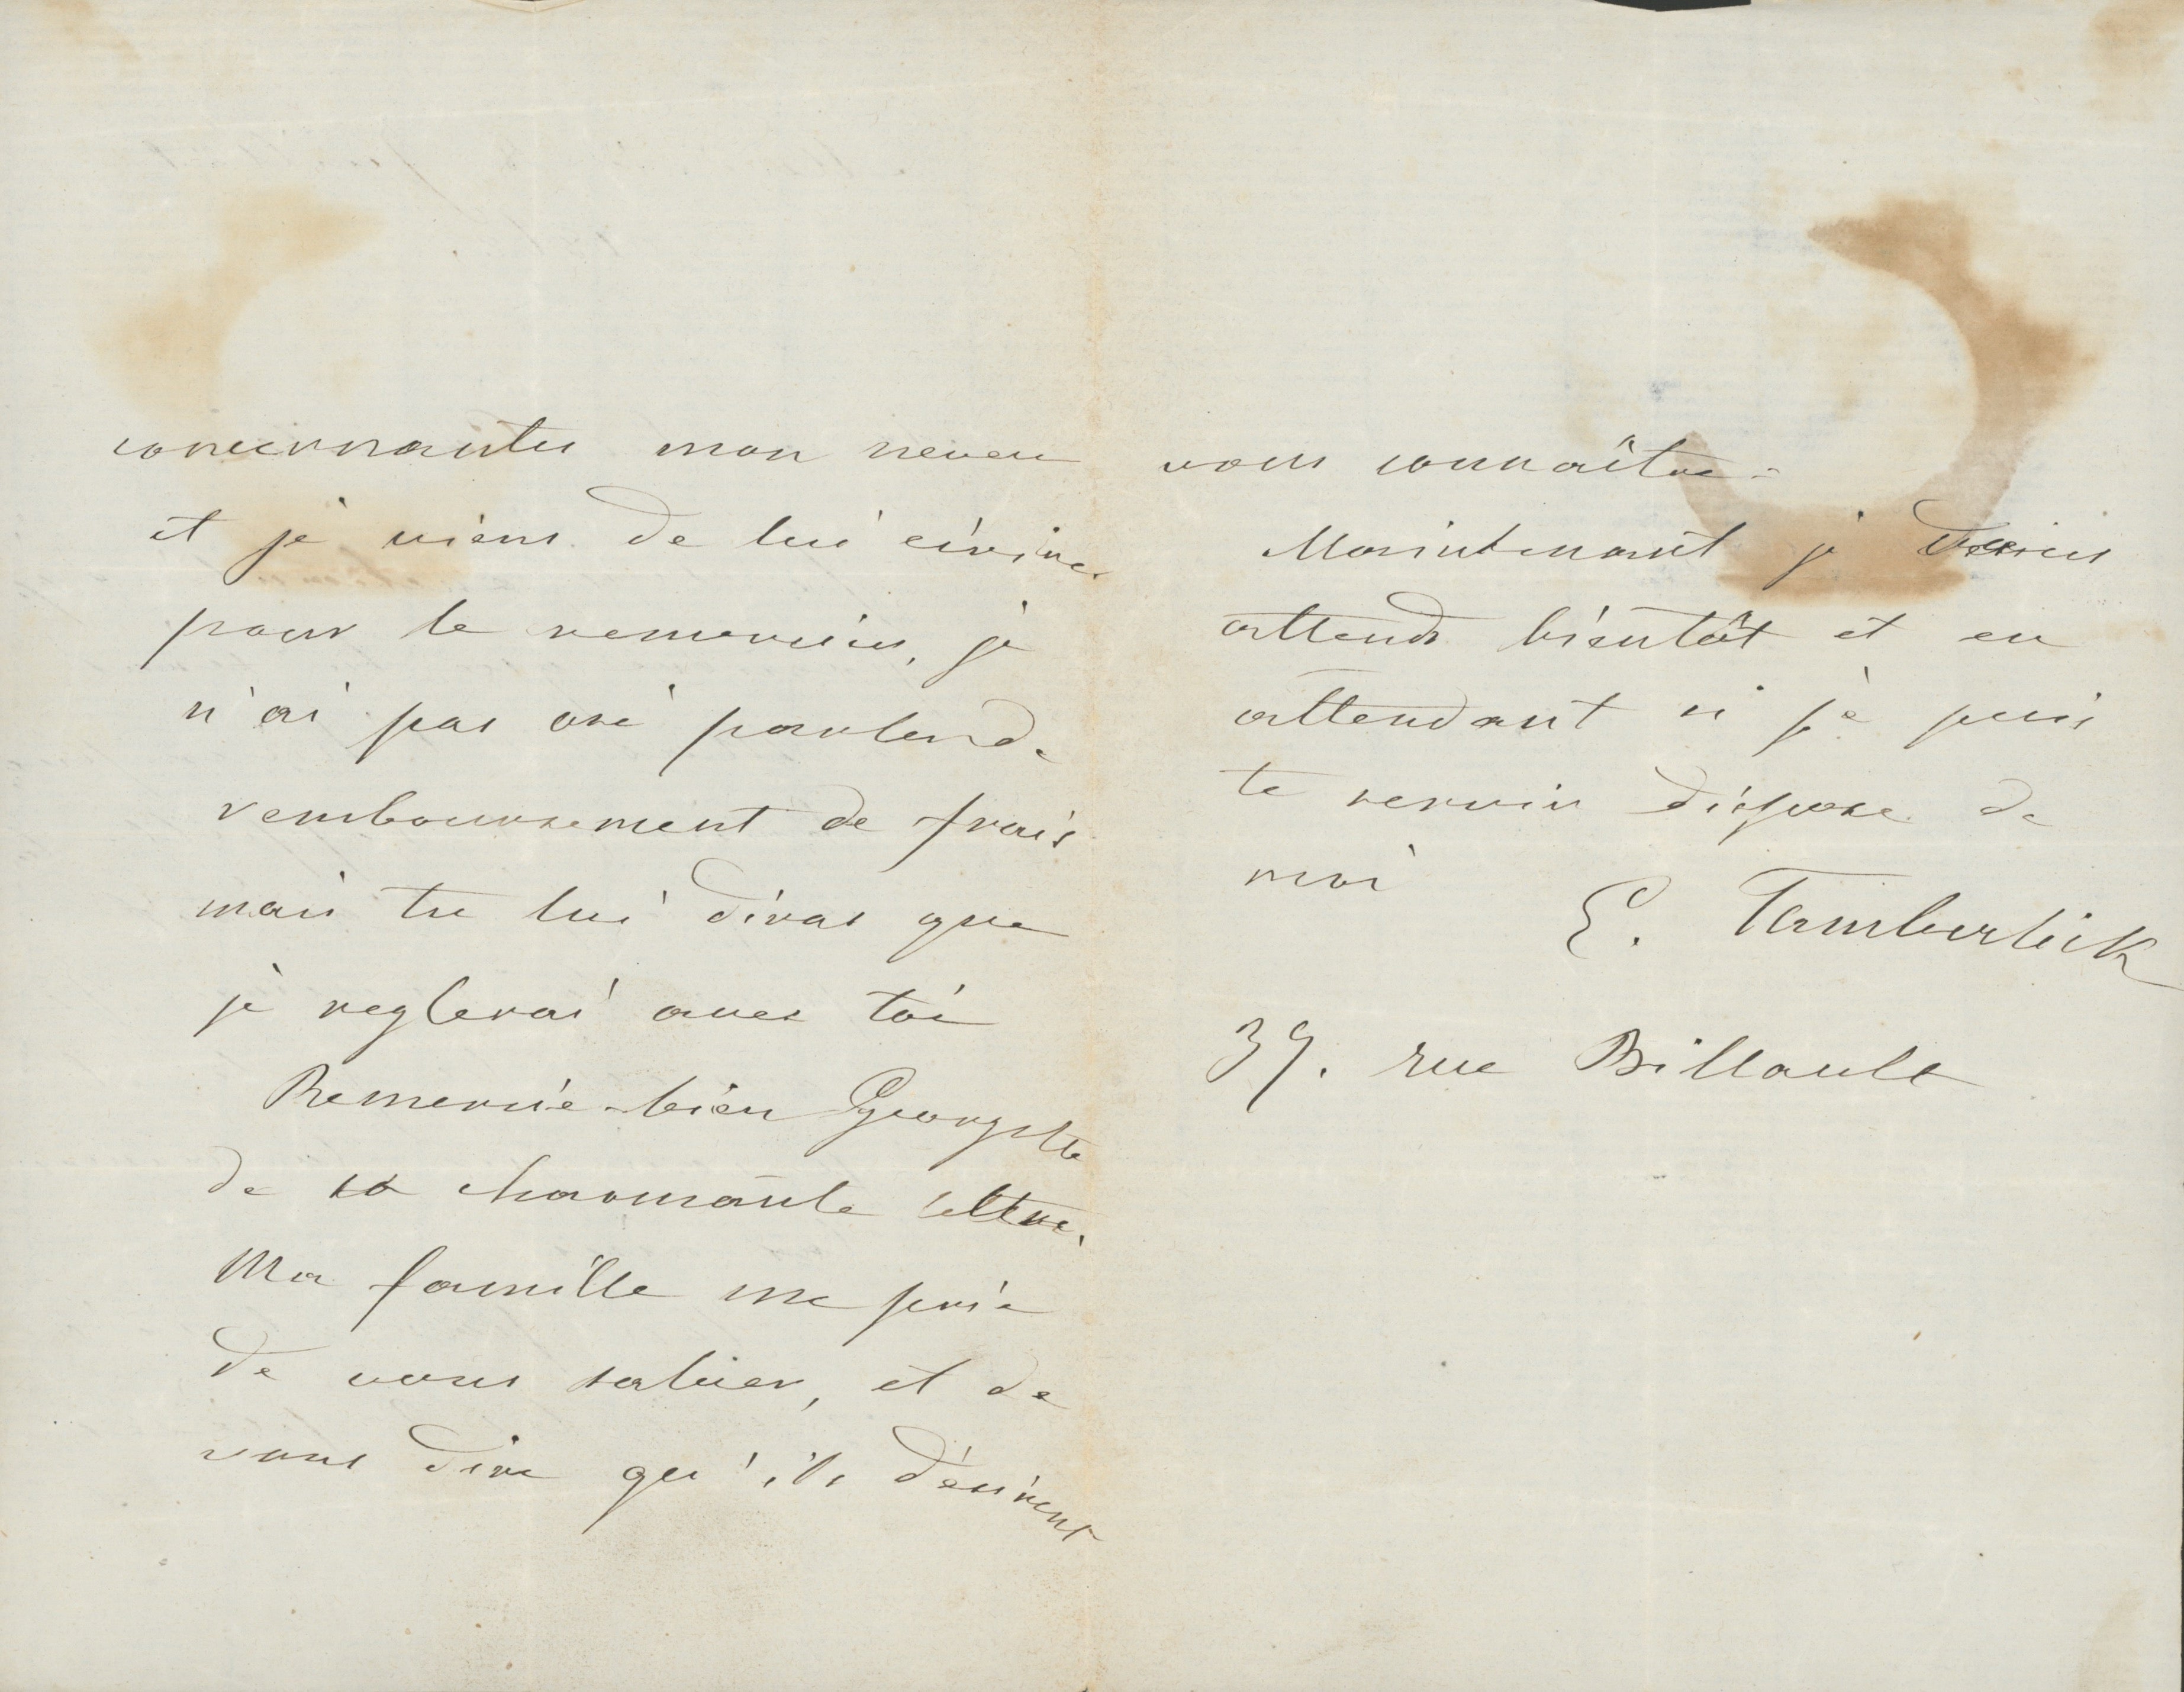 concernantes mon neveu
et je viens de lui écrire
pour le remercier, je
n'ai pas osé parler de
remboursement de frais
mais tu lui diras que
je reglerai avec toi
Remercie-bien Georgette
de sa charmante lettre.
Ma famille me prie
de vous saluer, et de
vous dire qu'ils désirent
vous connaître.
Maintenant je
attends bientôt et en
attendant si je puis
te servir dispose de
moi
E. Tamberlick
39. rue Billault